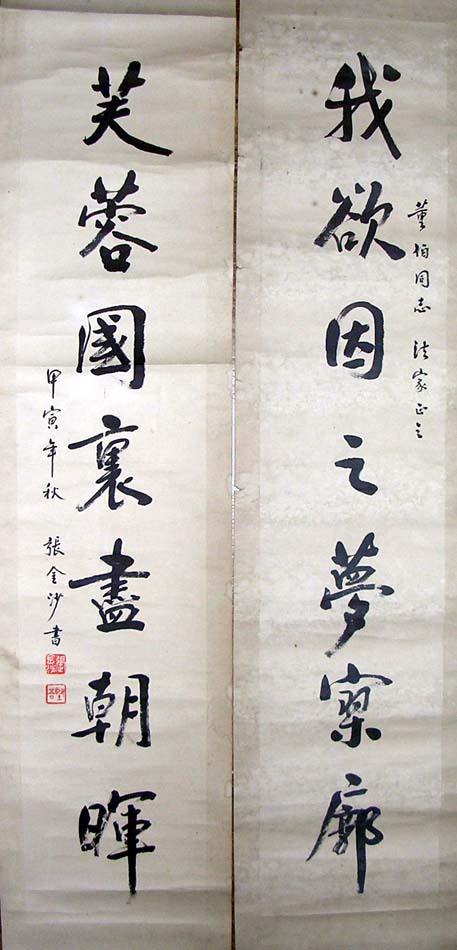 我欲因之夢寥廓
董伯同志 法家正之
芙蓉國裏盡朝暉
甲寅年秋 張金沙書